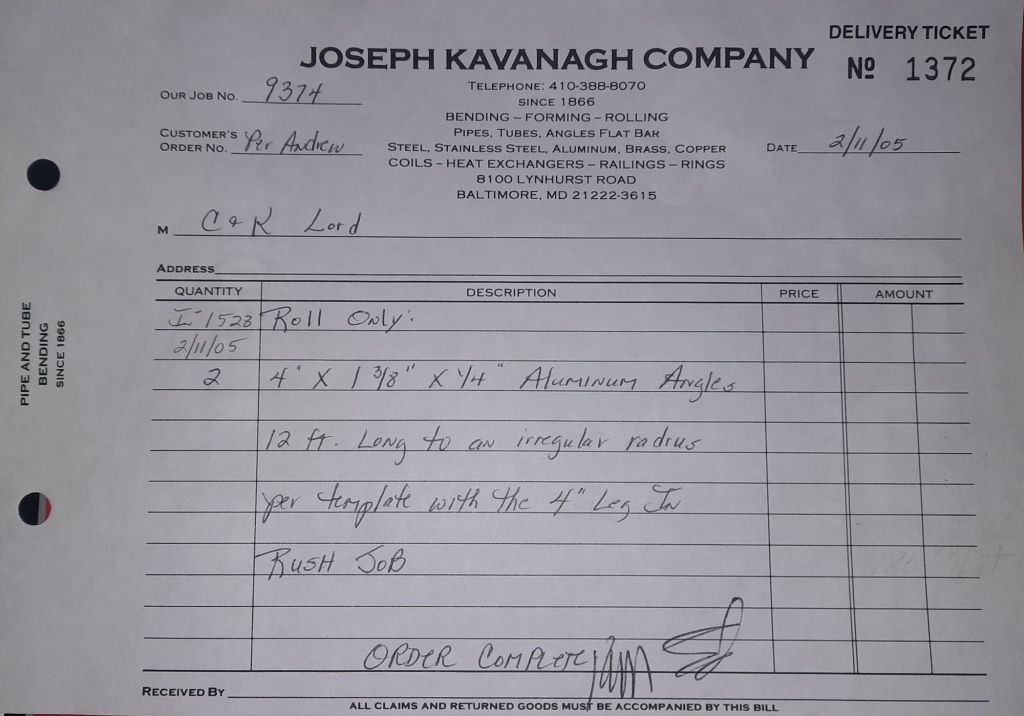 DELIVERY TICKET
JOSEPH KAVANAGH COMPANY
Nº 1372
TELEPHONE: 410-388-8070
SINCE 1866
BENDING – FORMING – ROLLING
PIPES, TUBES, ANGLES FLAT BAR
STEEL, STAINLESS STEEL, ALUMINUM, BRASS, COPPER
COILS – HEAT EXCHANGERS – RAILINGS – RINGS
8100 LYNHURST ROAD
BALTIMORE, MD 21222-3615
OUR JOB NO. 9374
CUSTOMER'S
ORDER NO. Per Andrew
DATE 2/11/05
M C & K Lord
ADDRESS
QUANTITY DESCRIPTION PRICE AMOUNT
In 1523 Roll Only:
2/11/05
2 4" X 1 3/8" X 1/4" Aluminum Angles
12 ft. Long to an irregular radius
per template with the 4" Leg In
RUSH JOB
ORDER COMPLETE
RECEIVED BY
ALL CLAIMS AND RETURNED GOODS MUST BE ACCOMPANIED BY THIS BILL
PIPE AND TUBE
BENDING
SINCE 1866